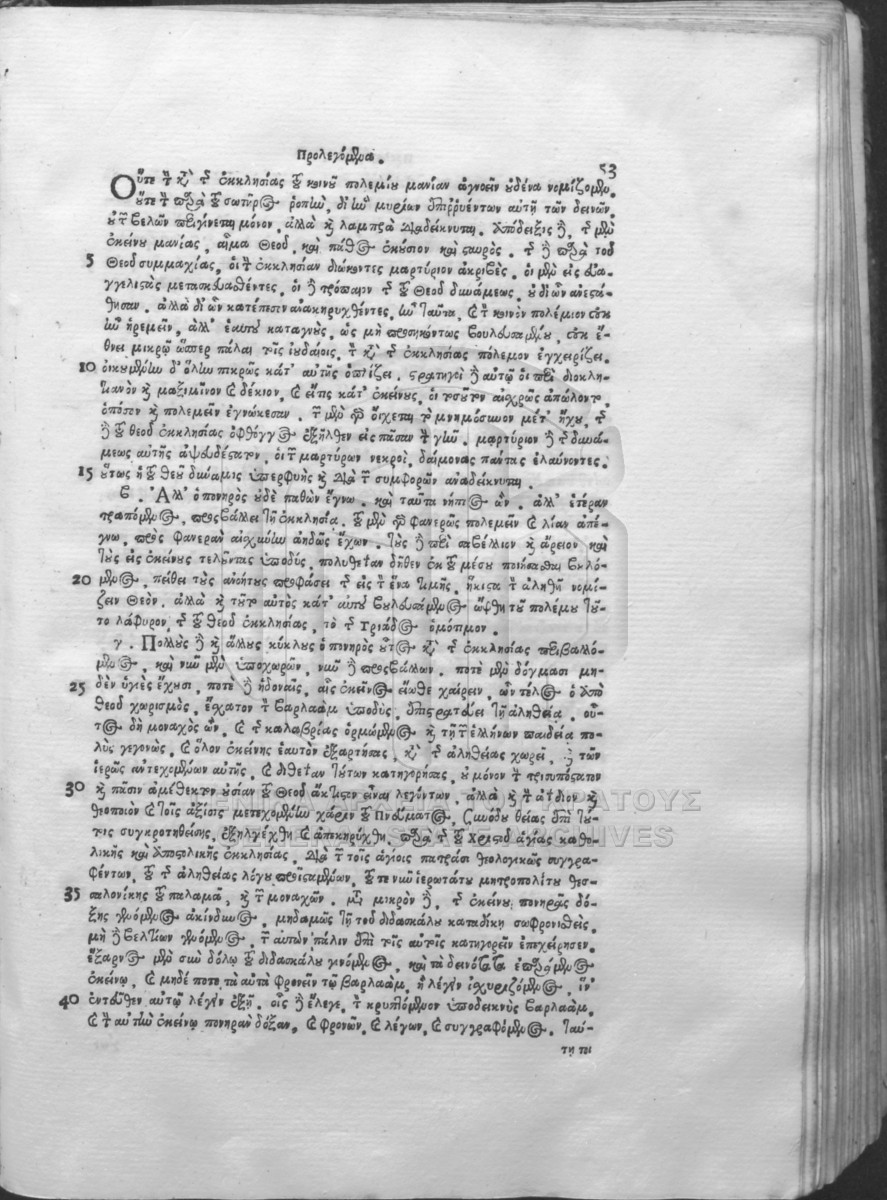 Προλεγόμενα.
53
Οὔτε τὴν κατὰ τῆς ἐκκλησίας τοῦ κοινοῦ πολεμίου μανίαν ἀγνοεῖν οὐδένα νομίζομεν,
οὔτε τὴν παρὰ τοῦ σωτῆρος ῥοπὴν, δι' ἣν μυρίων ἐπιῤῥυέντων αὐτῇ τῶν δεινῶν,
οὐ τῶν βελῶν περιγίνεται μόνον, ἀλλὰ καὶ λαμπρὰ διαδείκνυται. ἀπόδειξις δὲ, τῆς μὲν
ἐκείνου μανίας, αἷμα Θεοῦ, καὶ πάθος ἑκούσιον καὶ σταυρός. τῆς δὲ παρὰ τοῦ
5 Θεοῦ συμμαχίας, οἱ τὴν ἐκκλησίαν διώκοντες μαρτύριον ἀκριβές. οἱ μὲν εἰς εὐαγ-
γελιστὰς μετασκευασθέντες, οἱ δὲ τρόπαιον τῆς τοῦ Θεοῦ δυνάμεως, οὐ δι' ὧν ἀνεστά-
θησαν. ἀλλὰ δι' ὧν κατέπεσον ἀνακηρυχθέντες. ἦν ταῦτα, καὶ τὸν κοινὸν πολέμιον οὐκ
ἦν ἠρεμεῖν, ἀλλ' ἑαυτοῦ καταγνοὺς, ὡς μὴ προσηκόντως βουλευσαμένου, οὐκ ἔ-
θνει μικρῷ ὥσπερ πάλαι τοῖς ἰουδαίοις, τὸν κατὰ τῆς ἐκκλησίας πόλεμον ἐγχειρίζει.
10 οἰκουμένην δ' ὅλην πικρῶς κατ' αὐτῆς ὁπλίζει. στρατηγοὶ δὲ αὐτῷ οἱ περὶ διοκλη-
τιανὸν καὶ μαξιμῖνον καὶ δέκιον, καὶ εἴ τις κατ' ἐκείνους, οἳ τοσοῦτον αἰσχρῶς ἀπώλοντο,
ὁπόσον καὶ πολεμεῖν ἐγνώκεσαν. τῶν μὲν γὰρ οἴχεται τὸ μνημόσυνον μετ' ἤχου, τῆς
δὲ τοῦ Θεοῦ ἐκκλησίας ὁ φθόγγος ἐξῆλθεν εἰς πᾶσαν τὴν γῆν. μαρτύριον δὲ τῆς δυνά-
μεως αὐτῆς ἀψευδέστατον, οἱ τῶν μαρτύρων νεκροὶ, δαίμονας πάντας ἐλαύνοντες.
15 οὕτως ἡ τοῦ Θεοῦ δύναμις ὑπερφυὴς καὶ διὰ τῶν συμφορῶν ἀναδείκνυται.
β. Ἀλλ' ὁ πονηρὸς οὐδὲ παθὼν ἔγνω. καὶ ταῦτα νήπιος ὤν. ἀλλ' ἑτέραν
τραπόμενος, προσβάλλει τῇ ἐκκλησίᾳ. τοῦ μὲν γὰρ φανερῶς πολεμεῖν καὶ λίαν ἀπέ-
γνω, πρὸς φανερὰν αἰσχύνην ἀηδῶς ἔχων. τοὺς δὲ περὶ σαβέλλιον καὶ ἄρειον καὶ
τοὺς εἰς ἐκείνους τελοῦντας ὑποδὺς, πολυθεΐαν δῆθεν ἐκ τοῦ μέσου ποιήσασθαι βουλό-
20 μενος, πείθει τοὺς ἀνοήτους προφάσει τῆς εἰς τὸν ἕνα τιμῆς, ἥκιστα τὸν ἀληθῆ νομί-
ζειν Θεόν. ἀλλὰ καὶ τοῦτο αὐτὸς κατ' αὐτοῦ βουλευσάμενος ὤφθη τοῦ πολέμου τοῦ-
το λάφυρον τῆς τοῦ Θεοῦ ἐκκλησίας, τὸ τῆς Τριάδος ὁμότιμον.
γ. Πολλοὺς δὲ καὶ ἄλλους κύκλους ὁ πονηρὸς οὗτος κατὰ τῆς ἐκκλησίας περιβαλλό-
μενος, καὶ νῦν μὲν ὑποχωρῶν, νῦν δὲ προσβάλλων. ποτὲ μὲν δόγμασι μη-
25 δὲν ὑγιὲς ἔχουσι, ποτὲ δὲ ἡδοναῖς, αἷς ἐκεῖνος εἴωθε χαίρειν, ὧν τέλος ὁ ἀπὸ
Θεοῦ χωρισμὸς, ἔσχατον τὸν βαρλαὰμ ὑποδὺς, ἐπιστρατεύει τῇ ἀληθείᾳ. οὗ-
τος δὴ μοναχὸς ὢν, καὶ τῆς καλαβρίας ὁρμώμενος καὶ τῇ τῶν ἑλλήνων παιδείᾳ πο-
λὺς γεγονὼς, καὶ ὅλον ἐκείνης ἑαυτὸν ἐξαρτήσας, κατὰ τῆς ἀληθείας χωρεῖ, καὶ τῶν
ἱερῶς ἀντεχομένων αὐτῆς, καὶ διθεΐαν τούτων κατηγορήσας, οὐ μόνον τὴν τρισυπόστατον
30 καὶ πᾶσιν ἀμέθεκτον οὐσίαν τοῦ Θεοῦ ἄκτιστον εἶναι λεγόντων, ἀλλὰ καὶ τὴν ἀΐδιον καὶ
θεοποιὸν καὶ τοῖς ἀξίοις μετεχομένην χάριν τοῦ Πνεύματος, συνόδου θείας ἐπὶ τού-
τοις συγκροτηθείσης, ἐξηλέγχθη καὶ ἀπεκηρύχθη, παρὰ τῆς τοῦ Χριστοῦ ἁγίας καθο-
λικῆς καὶ ἀποστολικῆς ἐκκλησίας, διὰ τῶν τοῖς ἁγίοις πατράσι θεολογικῶς συγγρα-
φέντων, τοῦ τῆς ἀληθείας λόγου προϊσταμένων, τοῦ τε νῦν ἱερωτάτου μητροπολίτου θεσ-
35 σαλονίκης τοῦ παλαμᾶ, καὶ τῶν μοναχῶν. μετὰ μικρὸν δὲ, τῆς ἐκείνου πονηρᾶς δό-
ξης γενόμενος ἀκίνδυνος, μηδαμῶς τῇ τοῦ διδασκάλου καταδίκῃ σωφρονισθεὶς,
μὴ δὲ βελτίων γενόμενος, τῶν αὐτῶν πάλιν ἐπὶ τοῖς αὐτοῖς κατηγορεῖν ἐπεχείρησεν.
ἔξαρνος μὲν σὺν δόλῳ τοῦ διδασκάλου γινόμενος, καὶ τὰ δεινότατα ἐπαρώμενος
ἐκείνῳ, καὶ μηδέ ποτε τὰ αὐτὰ φρονεῖν τῷ βαρλαὰμ, ἢ λέγειν ἰσχυριζόμενος, ἵν'
40 ἐντεῦθεν αὐτῷ λέγειν ἐξῇ. οἷς δὲ ἔλεγε, τὸν κρυπτόμενον ὑποδεικνὺς βαρλαὰμ,
καὶ τὴν αὐτὴν ἐκείνῳ πονηρὰν δόξαν, καὶ φρονῶν, καὶ λέγων, καὶ συγγραφόμενος. ταύ-
τῃ τοι
ΓΕΝΙΚΑ ΑΡΧΕΙΑ ΤΟΥ ΚΡΑΤΟΥΣ
GENERAL STATE ARCHIVES